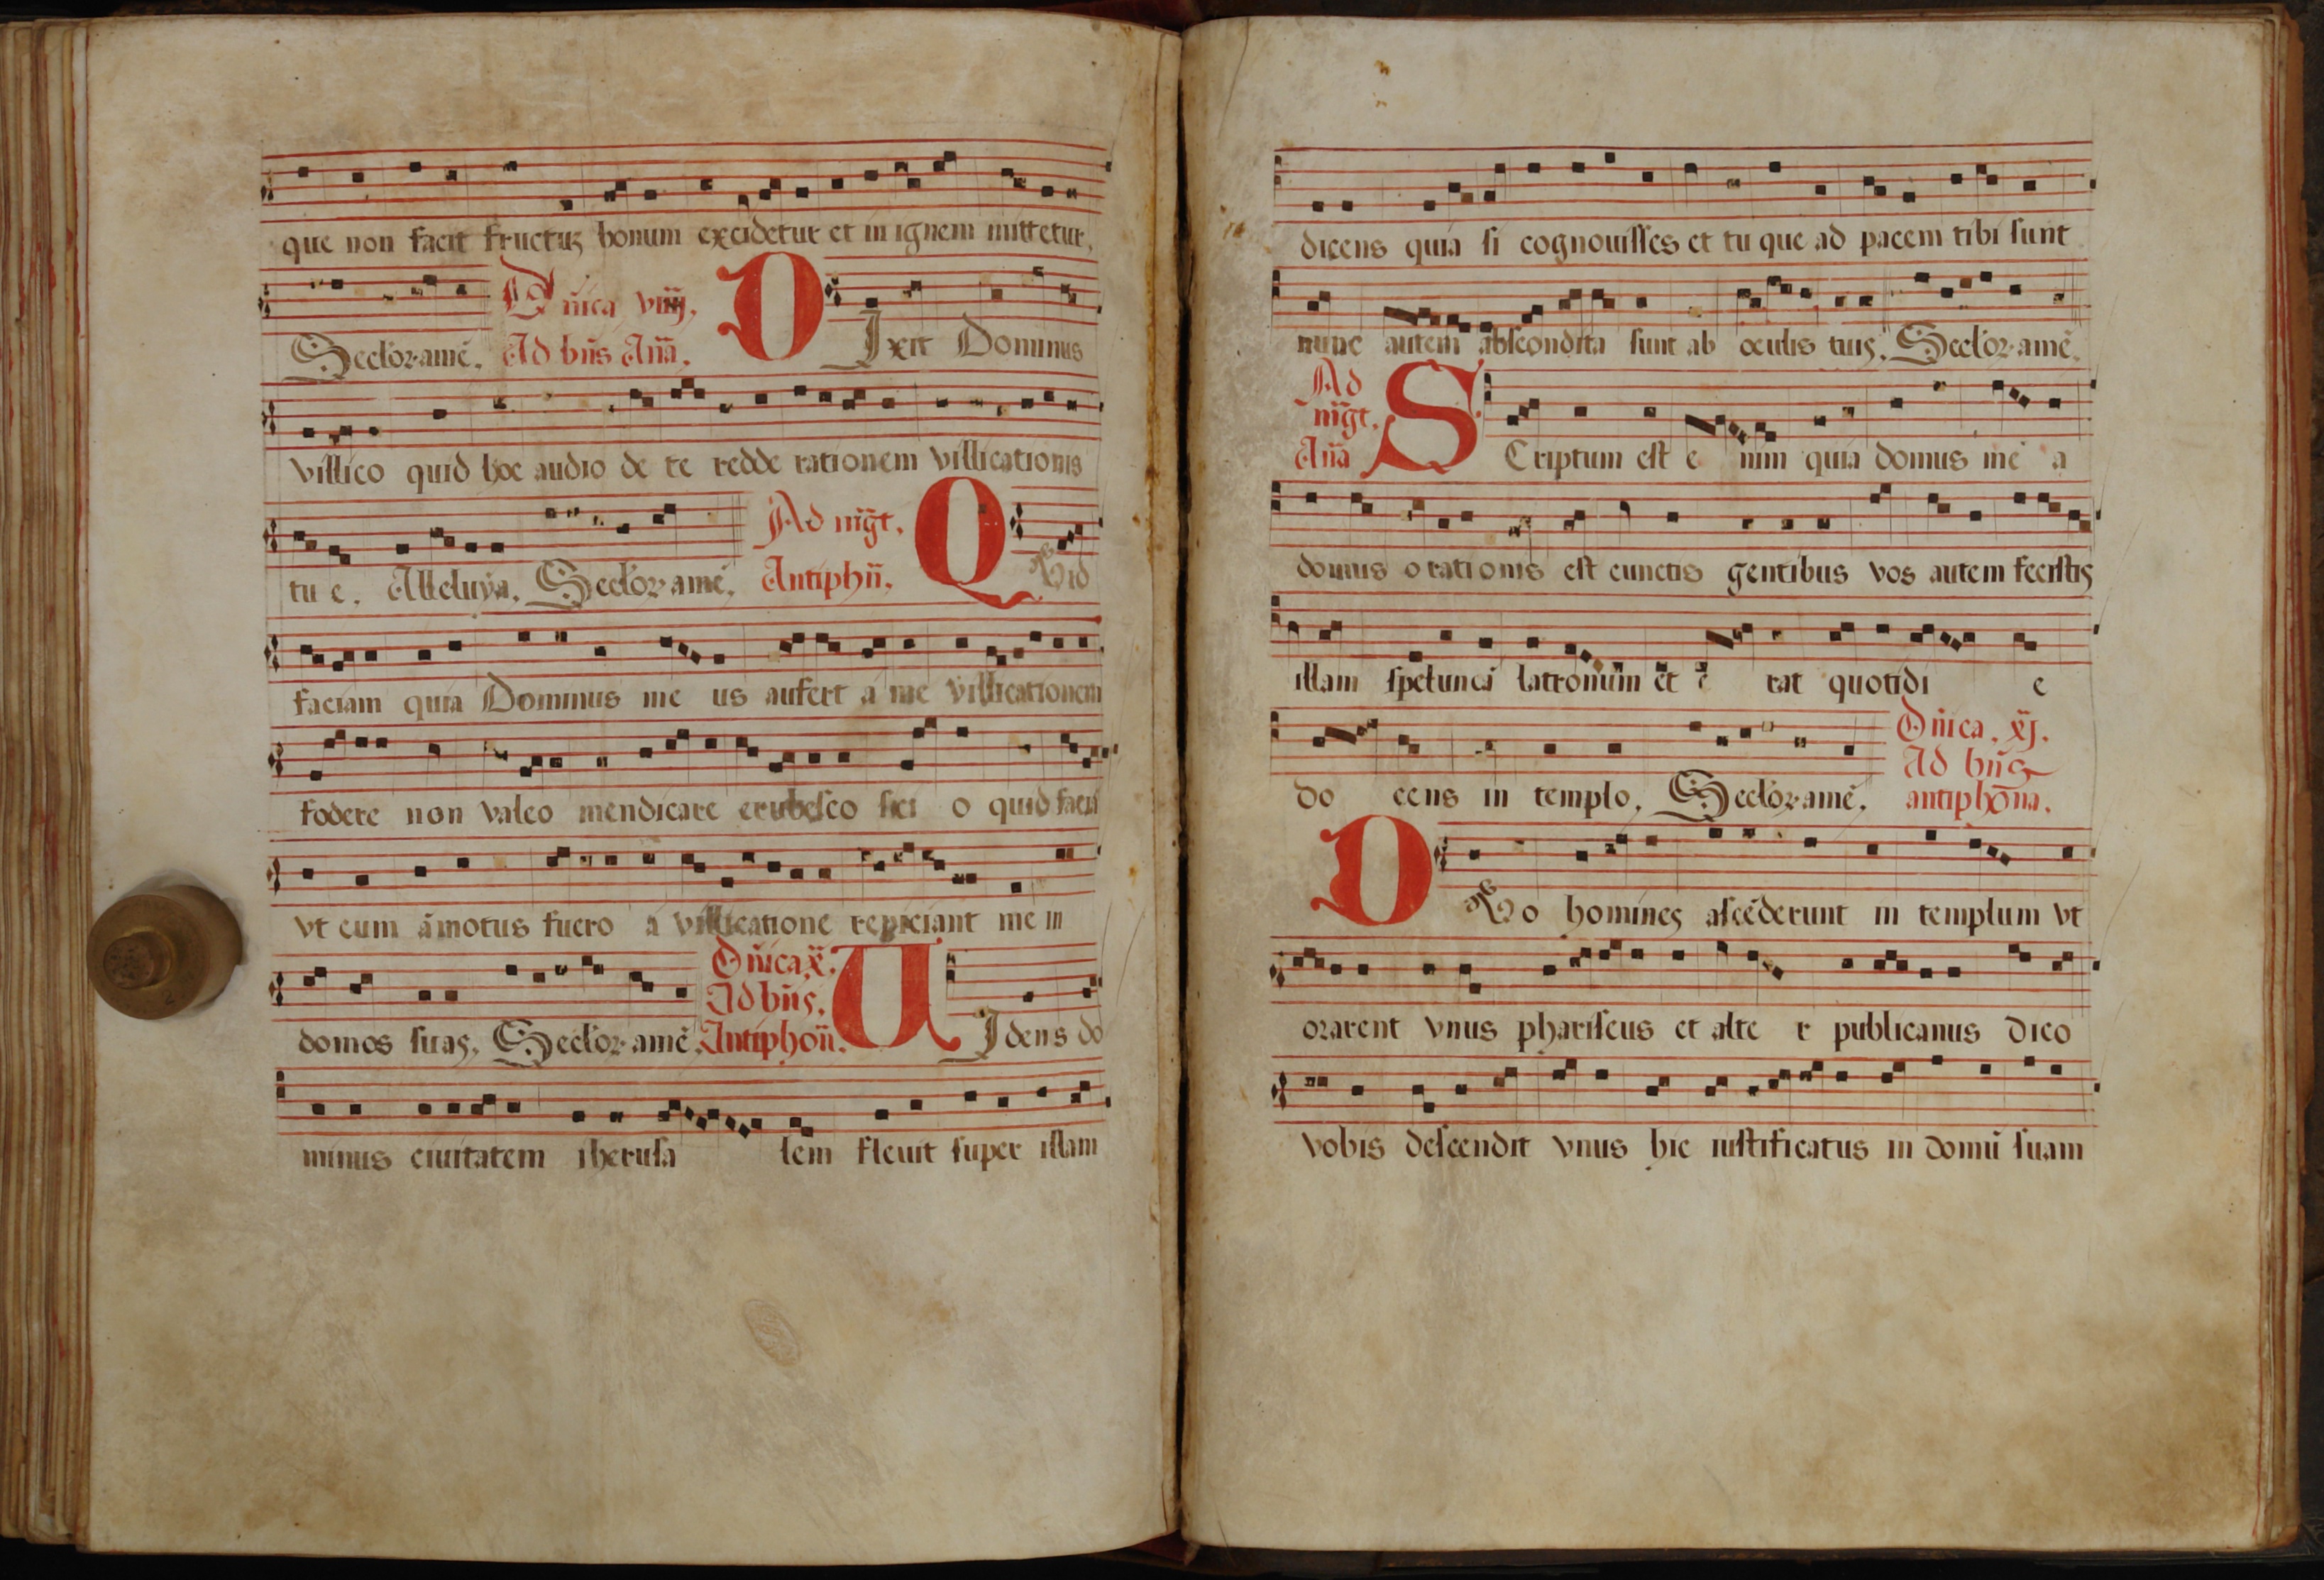 que non facit fructuꝫ bonum excidetur et in ignem mittetur,
Seclor. amē, Dn̄ica viiij, Ad bn̄s An̄a, DIxit Dominus
villico quid hoc audio de te redde rationem villicationis
tu e, Alleluya, Seclor. amē, Ad mḡt, Antiphn̄, QVid
faciam quia Dominus me us aufert a me villicationem
fodere non valeo mendicare erubesco sci o quid faciā
vt cum amotus fuero a villicatione repiciant me in
domos suas, Seclor. amē, Dn̄ica, x, Ad bn̄s, Antiphon̄, UIdens do
minus ciuitatem iherusa lem fleuit super illam
dicens quia si cognouisses et tu que ad pacem tibi sunt
nunc autem abscondita sunt ab oculis tuis, Seclor. amē,
Ad mḡt, An̄a SCriptum est e nim quia domus me a
domus orationis est cunctis gentibus vos autem fecistis
illam speluncā latronum et e rat quotidi e
do cens in templo, Seclor. amē, Dn̄ica, xj, Ad bn̄s antiphōna,
DVo homines ascēderunt in templum vt
orarent vnus phariseus et alte r publicanus dico
vobis descendit vnus hic iustificatus in domū suam